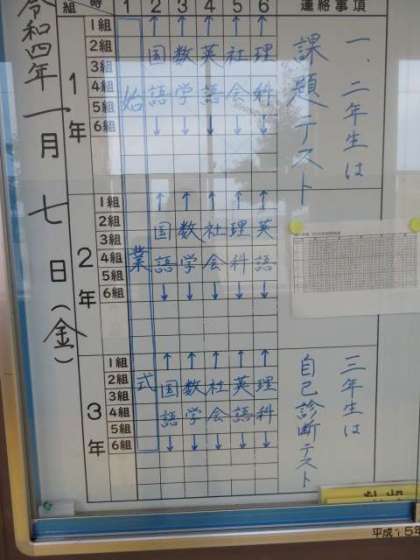 令和四年一月七日(金)
組
時
1 2 3 4 5 6
連絡事項
1年
1組
2組
3組
4組
5組
6組
国語
数学
英語
社会
理科
2年
1組
2組
3組
4組
5組
6組
国語
数学
社会
理科
英語
3年
1組
2組
3組
4組
5組
6組
国語
数学
社会
英語
理科
始業式
一、二年生は
課題テスト
三年生は
自己診断テスト
平成15年